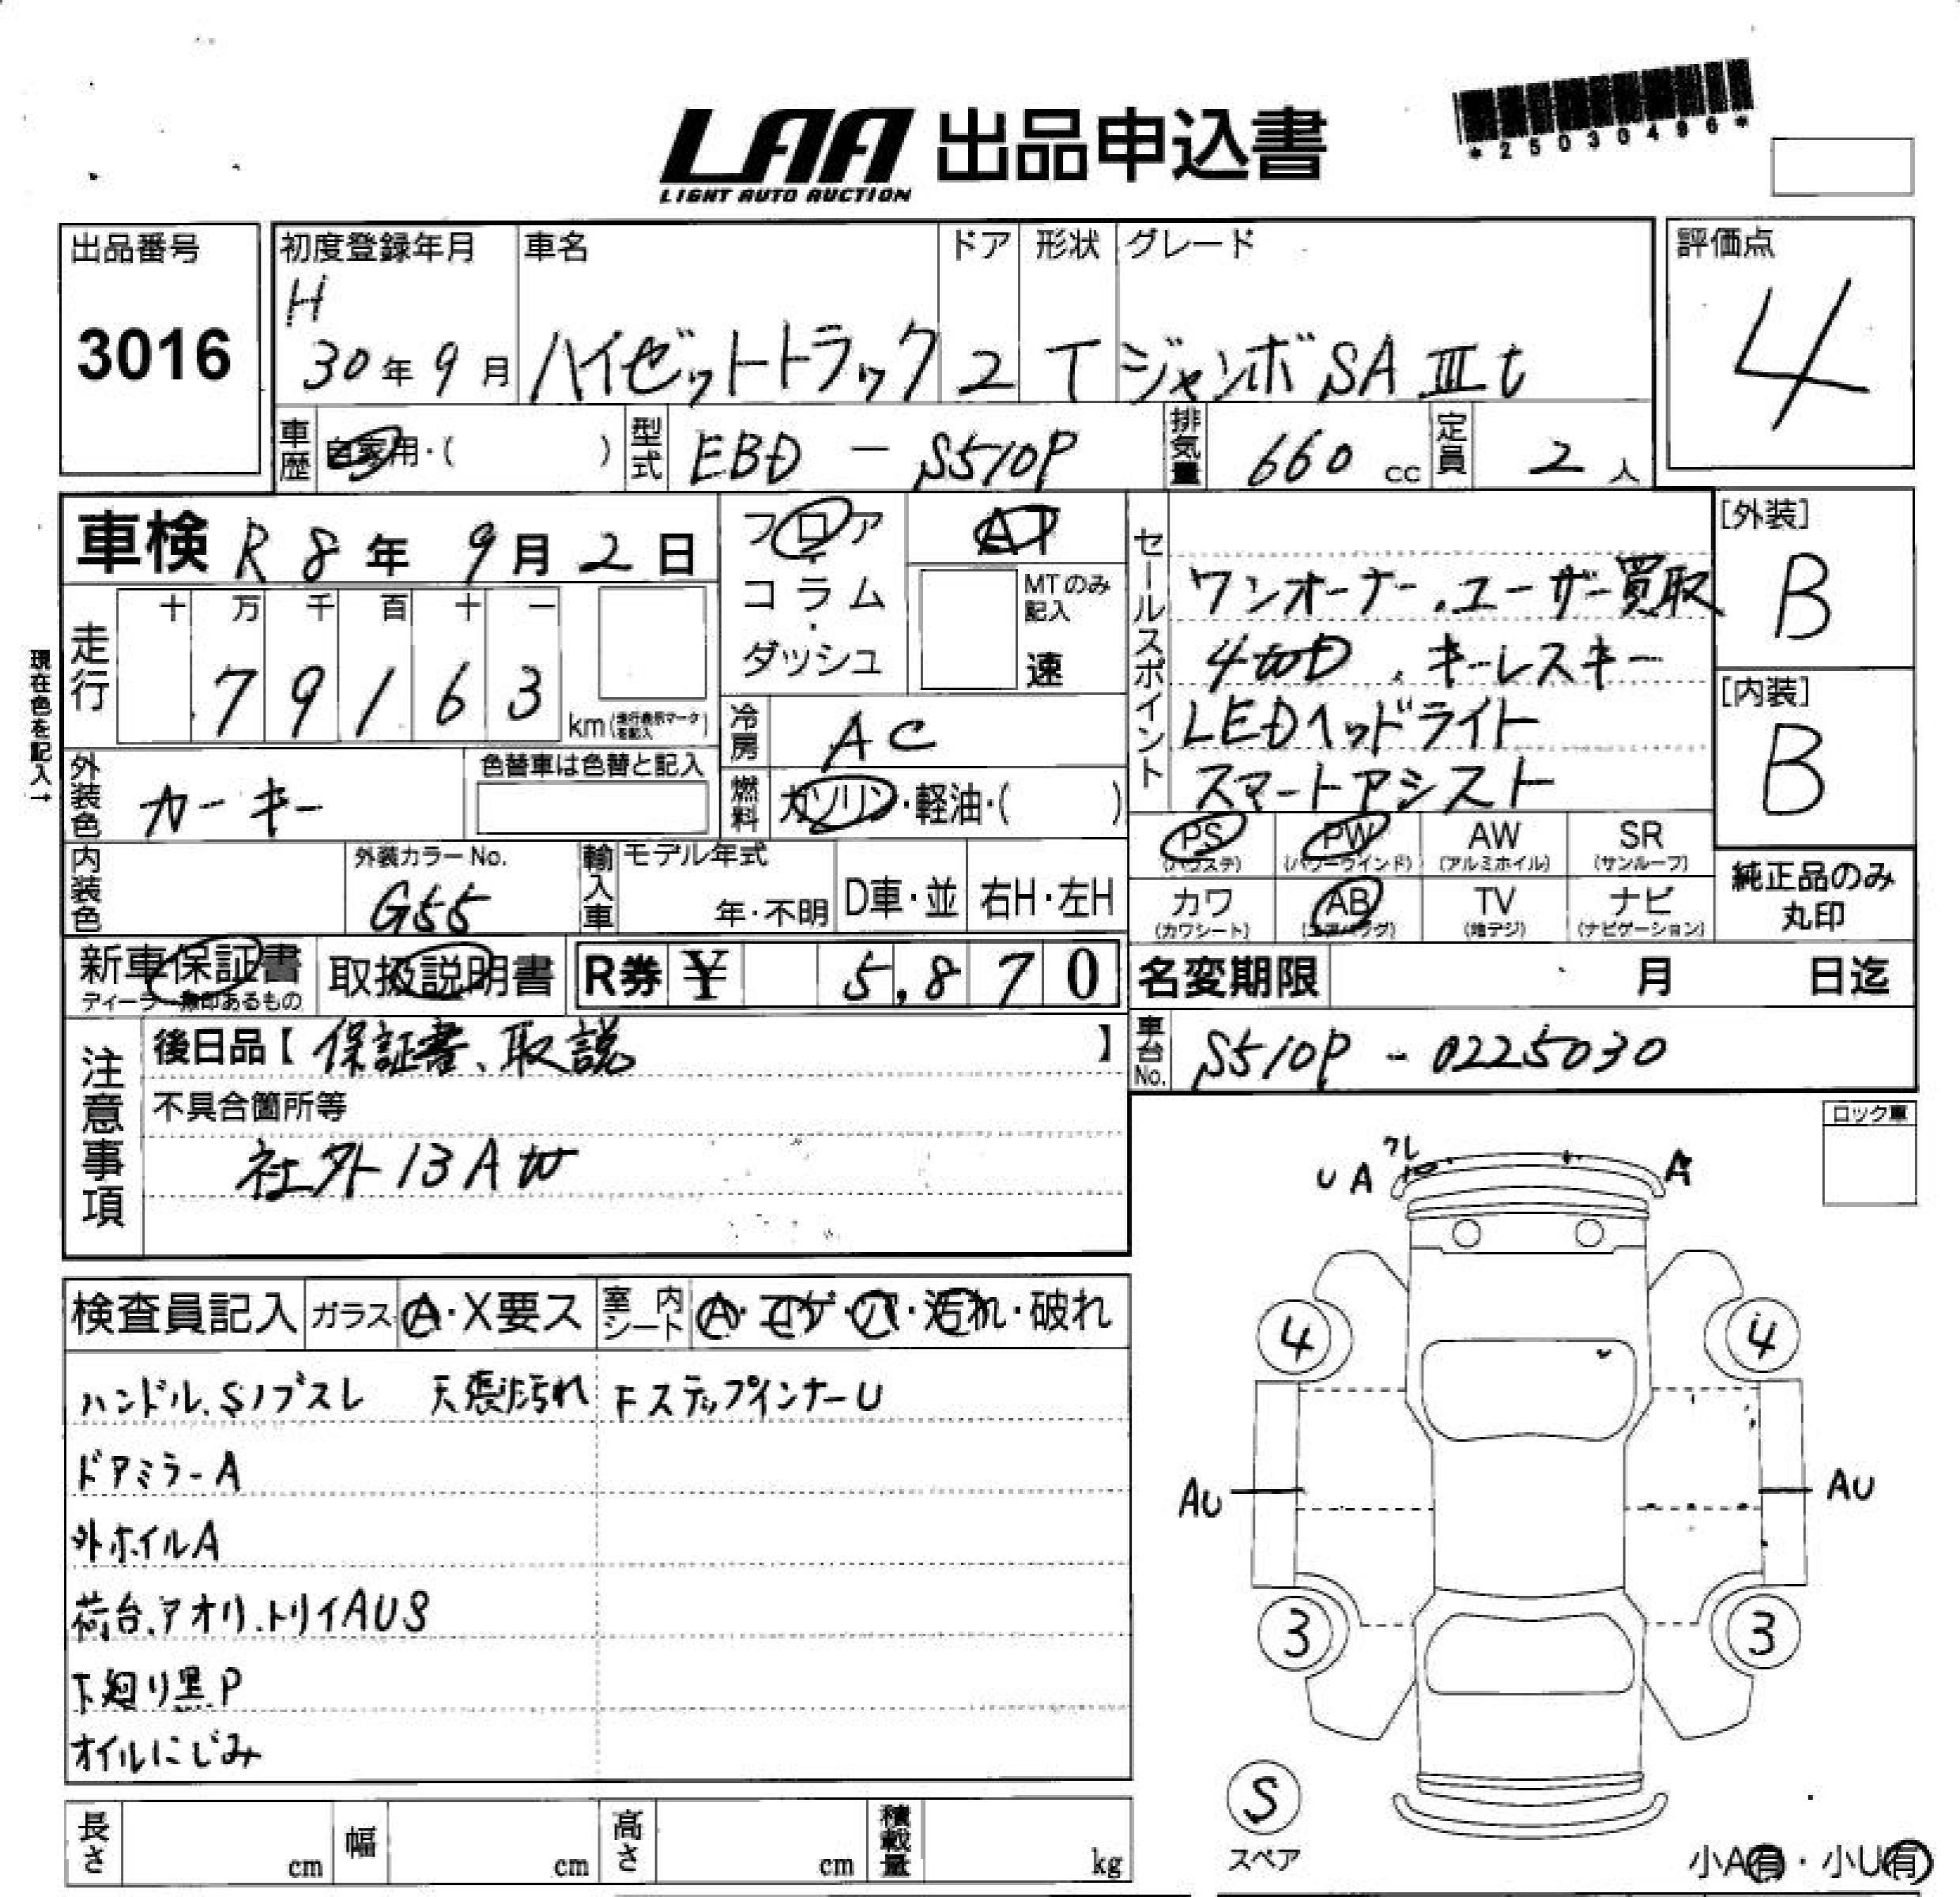 LAA 出品申込書
LIGHT AUTO AUCTION
*25030496*
出品番号
3016
初度登録年月 車名 ドア 形状 グレード
H
30年9月 ハイゼットトラック 2 T ジャンボSAⅢt
評価点
4
車歴 自家用・( ) 型式 EBD - S510P 排気量 660 cc 定員 2 人
車検 R8年 9月2日
フロア・コラム・ダッシュ
AT
MTのみ記入
速
セールスポイント
ワンオーナー、ユーザー買取
4WD、キーレスキー
LEDヘッドライト
スマートアシスト
[外装]
B
[内装]
B
現在色を記入→
走行 十 万 千 百 十 一
79163
km (走行表示マークを記入)
冷房 AC
外装色 カーキー
色替車は色替と記入
燃料 ガソリン・軽油・( )
PS (パワステ) PW (パワーウインド) AW (アルミホイル) SR (サンルーフ)
カワ (カワシート) AB (エアバッグ) TV (地デジ) ナビ (ナビゲーション)
純正品のみ
丸印
内装色 外装カラーNo. G55 輸入車 モデル年式 年・不明 D車・並 右H・左H
新車保証書 取扱説明書 R券 ¥ 5,870
ディーラー無印あるもの
名変期限 月 日迄
車台No. S510P - 0225030
注意事項
後日品【 保証書、取説 】
不具合箇所等
社外13AW
ロック車
検査員記入 ガラス A・X要ス 室内シート A・コゲ・穴・汚れ・破れ
ハンドル.Sノブスレ 天張汚れ FステップインナーU
ドアミラーA
外ホイルA
荷台.アオリ.トリイAUS
下廻り黒P
オイルにじみ
UA ワレ A
4 4
AU AU
3 3
S
スペア
小A有・小U有
長さ cm 幅 cm 高さ cm 積載量 kg